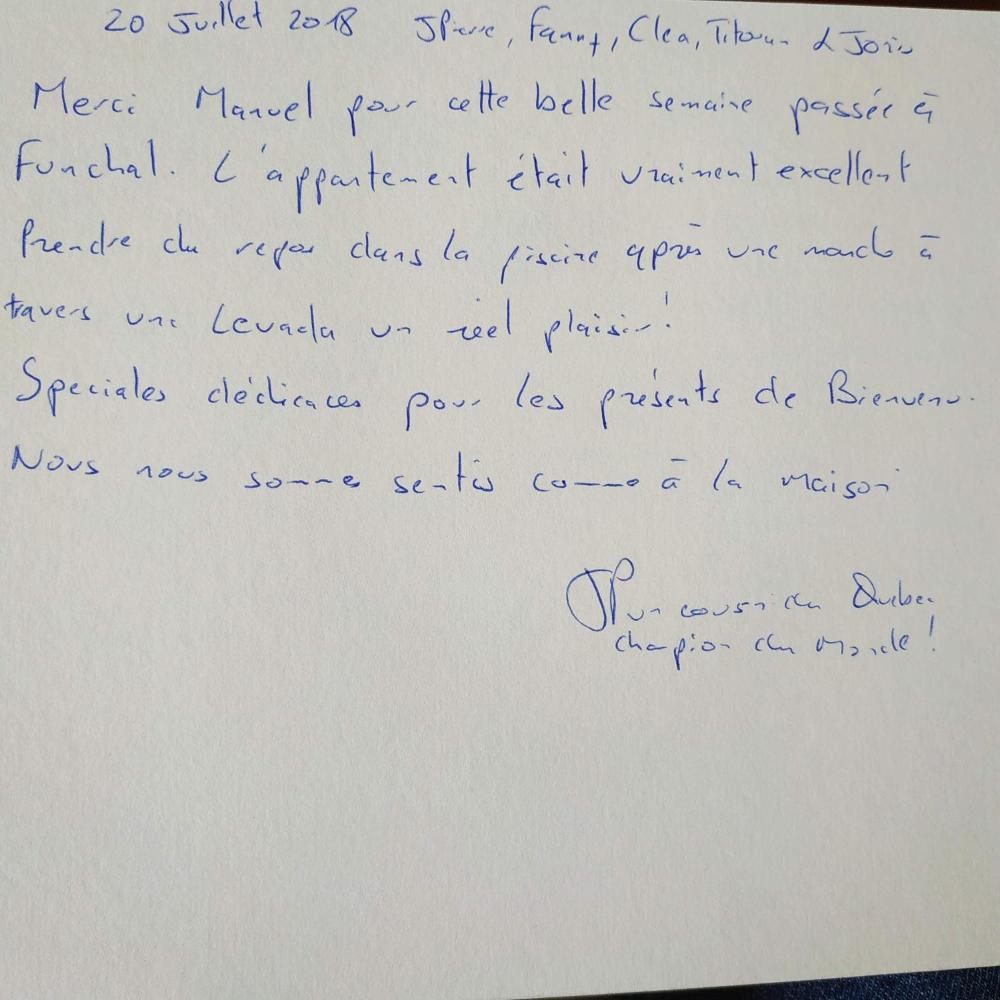 20 Juillet 2018 JPierre, Fanny, Clea, &
Merci Manuel pour cette belle semaine passée à
Funchal. L'appartement était vraiment excellent
Prendre du repos dans la piscine après une marche à
travers une Levada un réel plaisir!
Speciales dédicaces pour les présents de Bienvenu.
Nous nous somme sentis comme à la maison
JP un cousin du Quebec
champion du Monde!